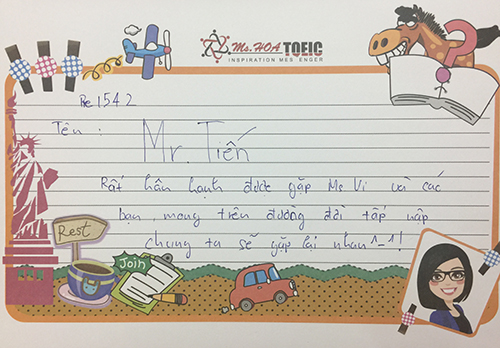 Ms.HOA TOEIC
INSPIRATION MES ENGER
Re 1542
Tên :
Mr. Tiến
Rất hân hạnh được gặp Ms Vi và các
bạn, mong trên đường đời tấp nập
chúng ta sẽ gặp lại nhau ^-^!
Rest
Join